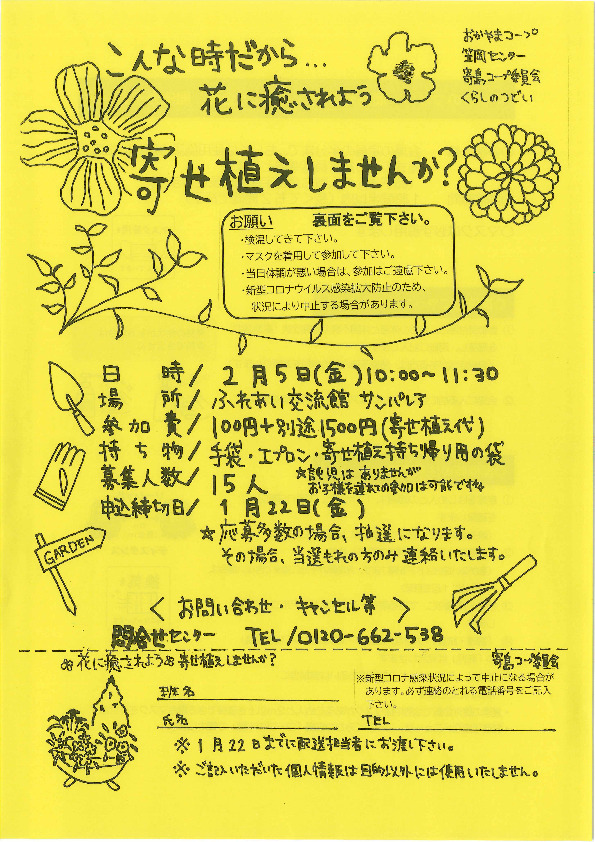 こんな時だから…
花に癒されよう
おかやまコープ
笠岡センター
寄島コープ委員会
くらしのつどい
寄せ植えしませんか?
お願い 裏面をご覧下さい。
・検温してきて下さい。
・マスクを着用して参加して下さい。
・当日体調が悪い場合は、参加はご遠慮下さい。
・新型コロナウイルス感染拡大防止のため、
状況により中止する場合があります。
日 時/ 2月5日(金)10:00~11:30
場 所/ ふれあい交流館 サンパレア
参加費/ 100円+別途1500円(寄せ植え代)
持ち物/ 手袋・エプロン・寄せ植え持ち帰り用の袋
募集人数/ 15人
☆託児はありませんが
お子様を連れての参加は可能です
申込締切日/ 1月22日(金)
☆応募多数の場合、抽選になります。
その場合、当選もれの方のみ連絡いたします。
GARDEN
〈 お問い合わせ・キャンセル等 〉
問合せセンター TEL/0120-662-538
花に癒されよう 寄せ植えしませんか?
寄島コープ委員会
班名
氏名
※新型コロナ感染状況によって中止になる場合が
あります。必ず連絡のとれる電話番号をご記入
下さい。
TEL
※ 1月22日までに配送担当者にお渡し下さい。
※ ご記入いただいた個人情報は目的以外には使用いたしません。